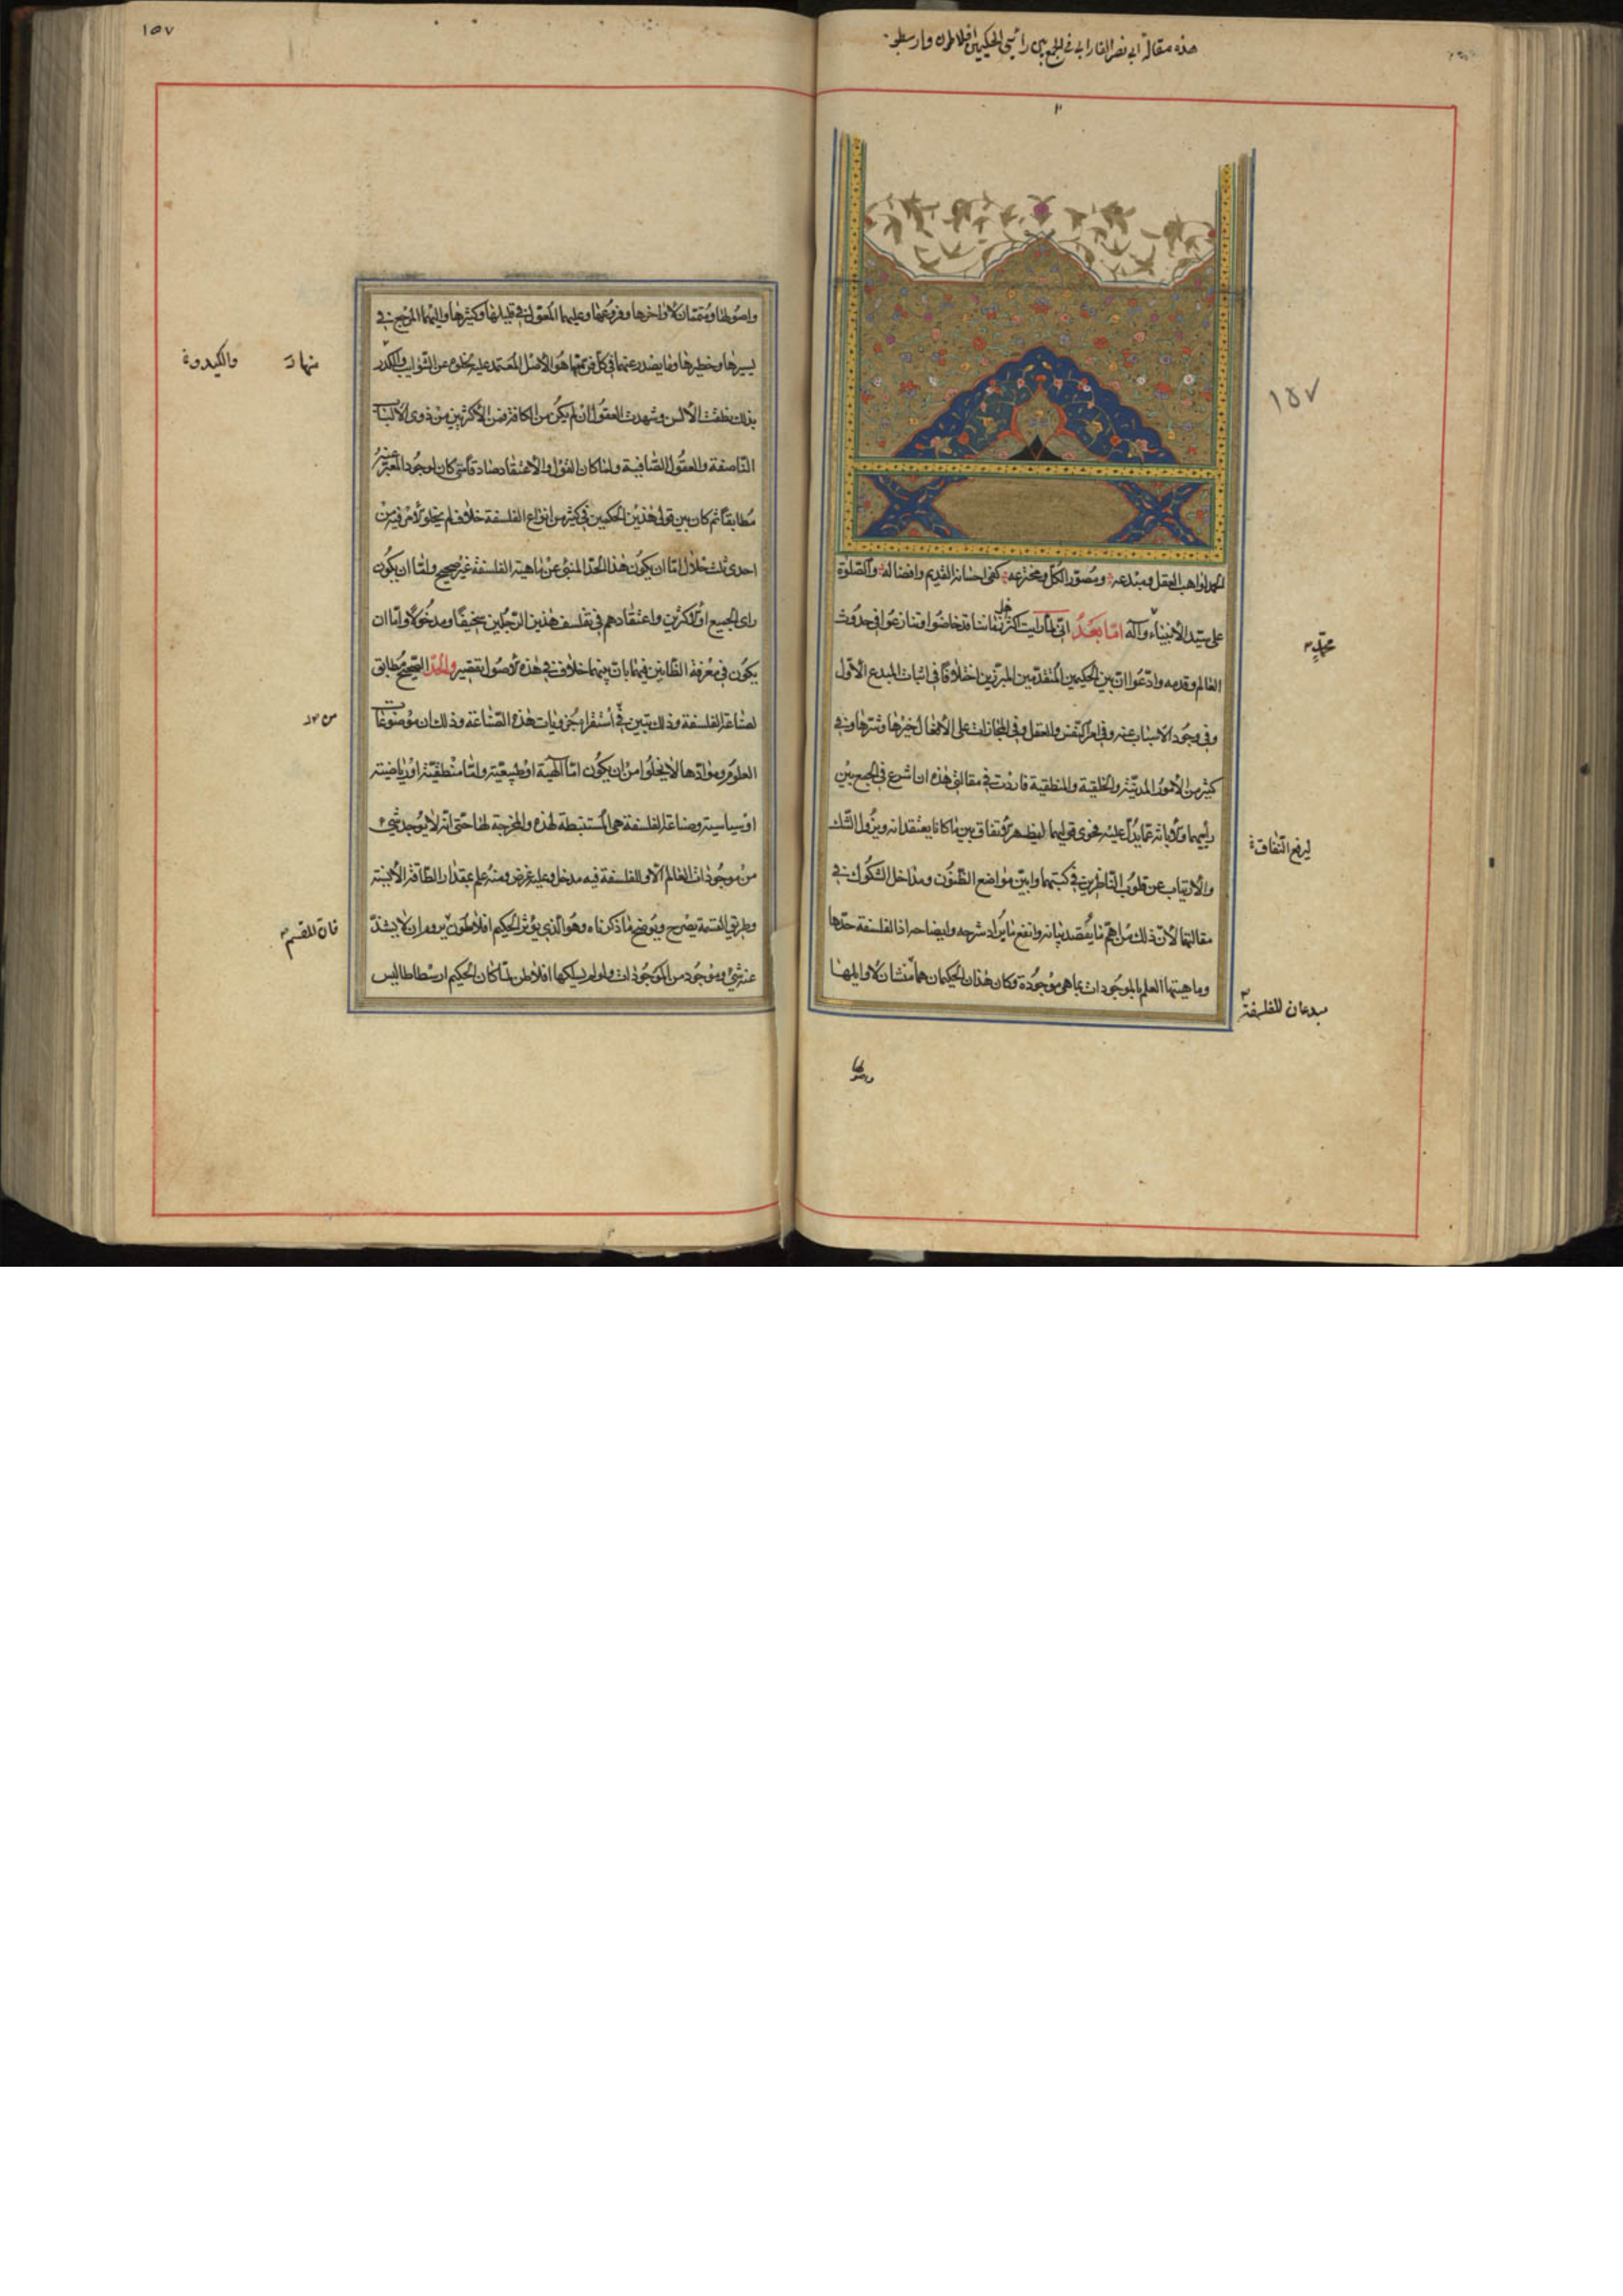 هذه مقالة ابى نصر الفارابى فى الجمع بين رأيى الحكيمين افلاطون وارسطو
١٥٧
الحمد لواهب العقل ومبدعه ومصور الكل ومخترعه كفى احسانه القديم وافضاله والصلوة
على سيد الأنبياء وآله امّا بعد انى لما رايت اكثر اهل زماننا قد خاضوا وتنازعوا فى حدوث
محمد
العالم وقدمه وادّعوا ان بين الحكيمين المتقدمين المبرزين اختلافا فى اثبات المبدع الأول
وفى وجود الاسباب عنه وفى امر النفس والعقل وفى المجازات على الأفعال خيرها وشرها وفى
كثير من الأمور المدنية والخلقية والمنطقية فاردت فى مقالتى هذه ان اشرع فى الجمع بين
رأييهما والإبانة عما يدل عليه فحوى قوليهما ليظهر الاتفاق بين ما كانا يعتقدانه ويزول الشك
والارتياب عن قلوب الناظرين فى كتبهما وابين مواضع الظنون ومداخل الشكوك فى
مقالتهما لأن ذلك من اهم ما يقصد بيانه وانفع ما يراد شرحه وايضاحه اذ الفلسفة حدها
وماهيتها العلم بالموجودات بما هى موجودة وكان هذان الحكيمان هما منشآن لأوايلها
مبدعان للفلسفة
واصولها
١٥٧
واصولها ومتممان لأواخرها وفروعها وعليهما المعول فى قليلها وكثيرها واليهما المرجع فى
يسيرها وخطيرها وما يصدر عنهما فى كل فن انما هو الأصل المعتمد عليه لخلوه عن الشوايب والكدر
بذلك نطقت الألسن وشهدت العقول ان لم يكن من الكافة فمن الأكثرين من ذوى الألباب
الناصعة والعقول الصافية ولما كان القول والاعتقاد صادقا متى كان لوجود المعبر عنه
مطابقا ثم كان بين قولى هذين الحكيمين فى كثير من انواع الفلسفة خلاف لم يخلو الأمر فيه من
احدى ثلث خلال اما ان يكون هذا الحد المنبئ عن ماهية الفلسفة غير صحيح واما ان يكون
راى الجميع او الأكثرين واعتقادهم فى تفلسف هذين الرجلين سخيفا ومدخولا واما ان
يكون فى معرفة الظانين فيهما بان بينهما خلاف فى هذه الأصول تقصير والحد الصحيح مطابق
لصناعة الفلسفة وذلك يتبين فى استقراء جزويات هذه الصناعة وذلك ان موضوعات
العلوم وموادها لا يخلوا من ان يكون اما الهية او طبيعية واما منطقية او رياضية
او سياسية وصناعة الفلسفة هى المستنبطة لهذه والمخرجة لها حتى انه لا يوجد شىء
من موجودات العالم الا وللفلسفة فيه مدخل وعليه غرض ومنه علم بمقدار الطاقة الأنسية
وطريق القسمة يصرح ويوضح ما ذكرناه وهو الذى يؤثر الحكيم افلاطون يروم ان لا يشذ
عنه شىء موجود من الموجودات ولو لم يسلكها افلاطن لما كان الحكيم ارسطاطاليس